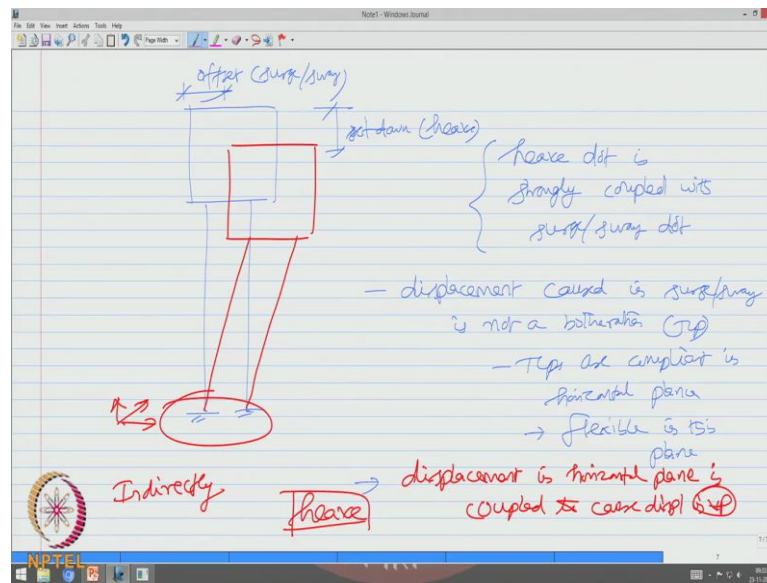 Note1 - Windows Journal
File Edit View Insert Actions Tools Help
Page Width
offset (surge/sway)
set-down (heave)
heave dof is
strongly coupled with
surge/sway dof
- displacement caused in surge/sway
is not a botheration (TLP)
- TLPs are compliant in
horizontal plane
→ flexible in this
plane
Indirectly
→ displacement in horizontal plane is
coupled to cause displ
heave
NPTEL
7